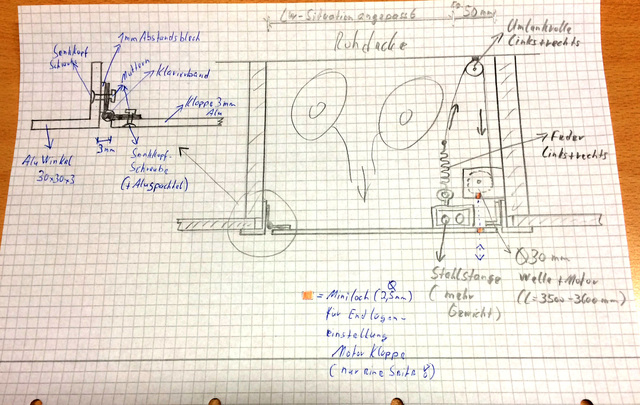 LW-Situation angepasst
50mm
Rohdecke
Umlenkrolle
Links+rechts
Senkkopf
Schraube
1mm Abstandsblech
Muttern
Klavierband
Klappe 3mm
Alu
3mm
Alu Winkel
30x30x3
Senkkopf-
Schraube
(+Aluspachtel)
Feder
Links+rechts
Stahlstange
(mehr
Gewicht)
Ø30mm
Welle+Motor
(L=3500-3600mm)
= Miniloch (Ø2,5mm)
für Endlagen-
einstellung
Motor Klappe
(nur eine Seite